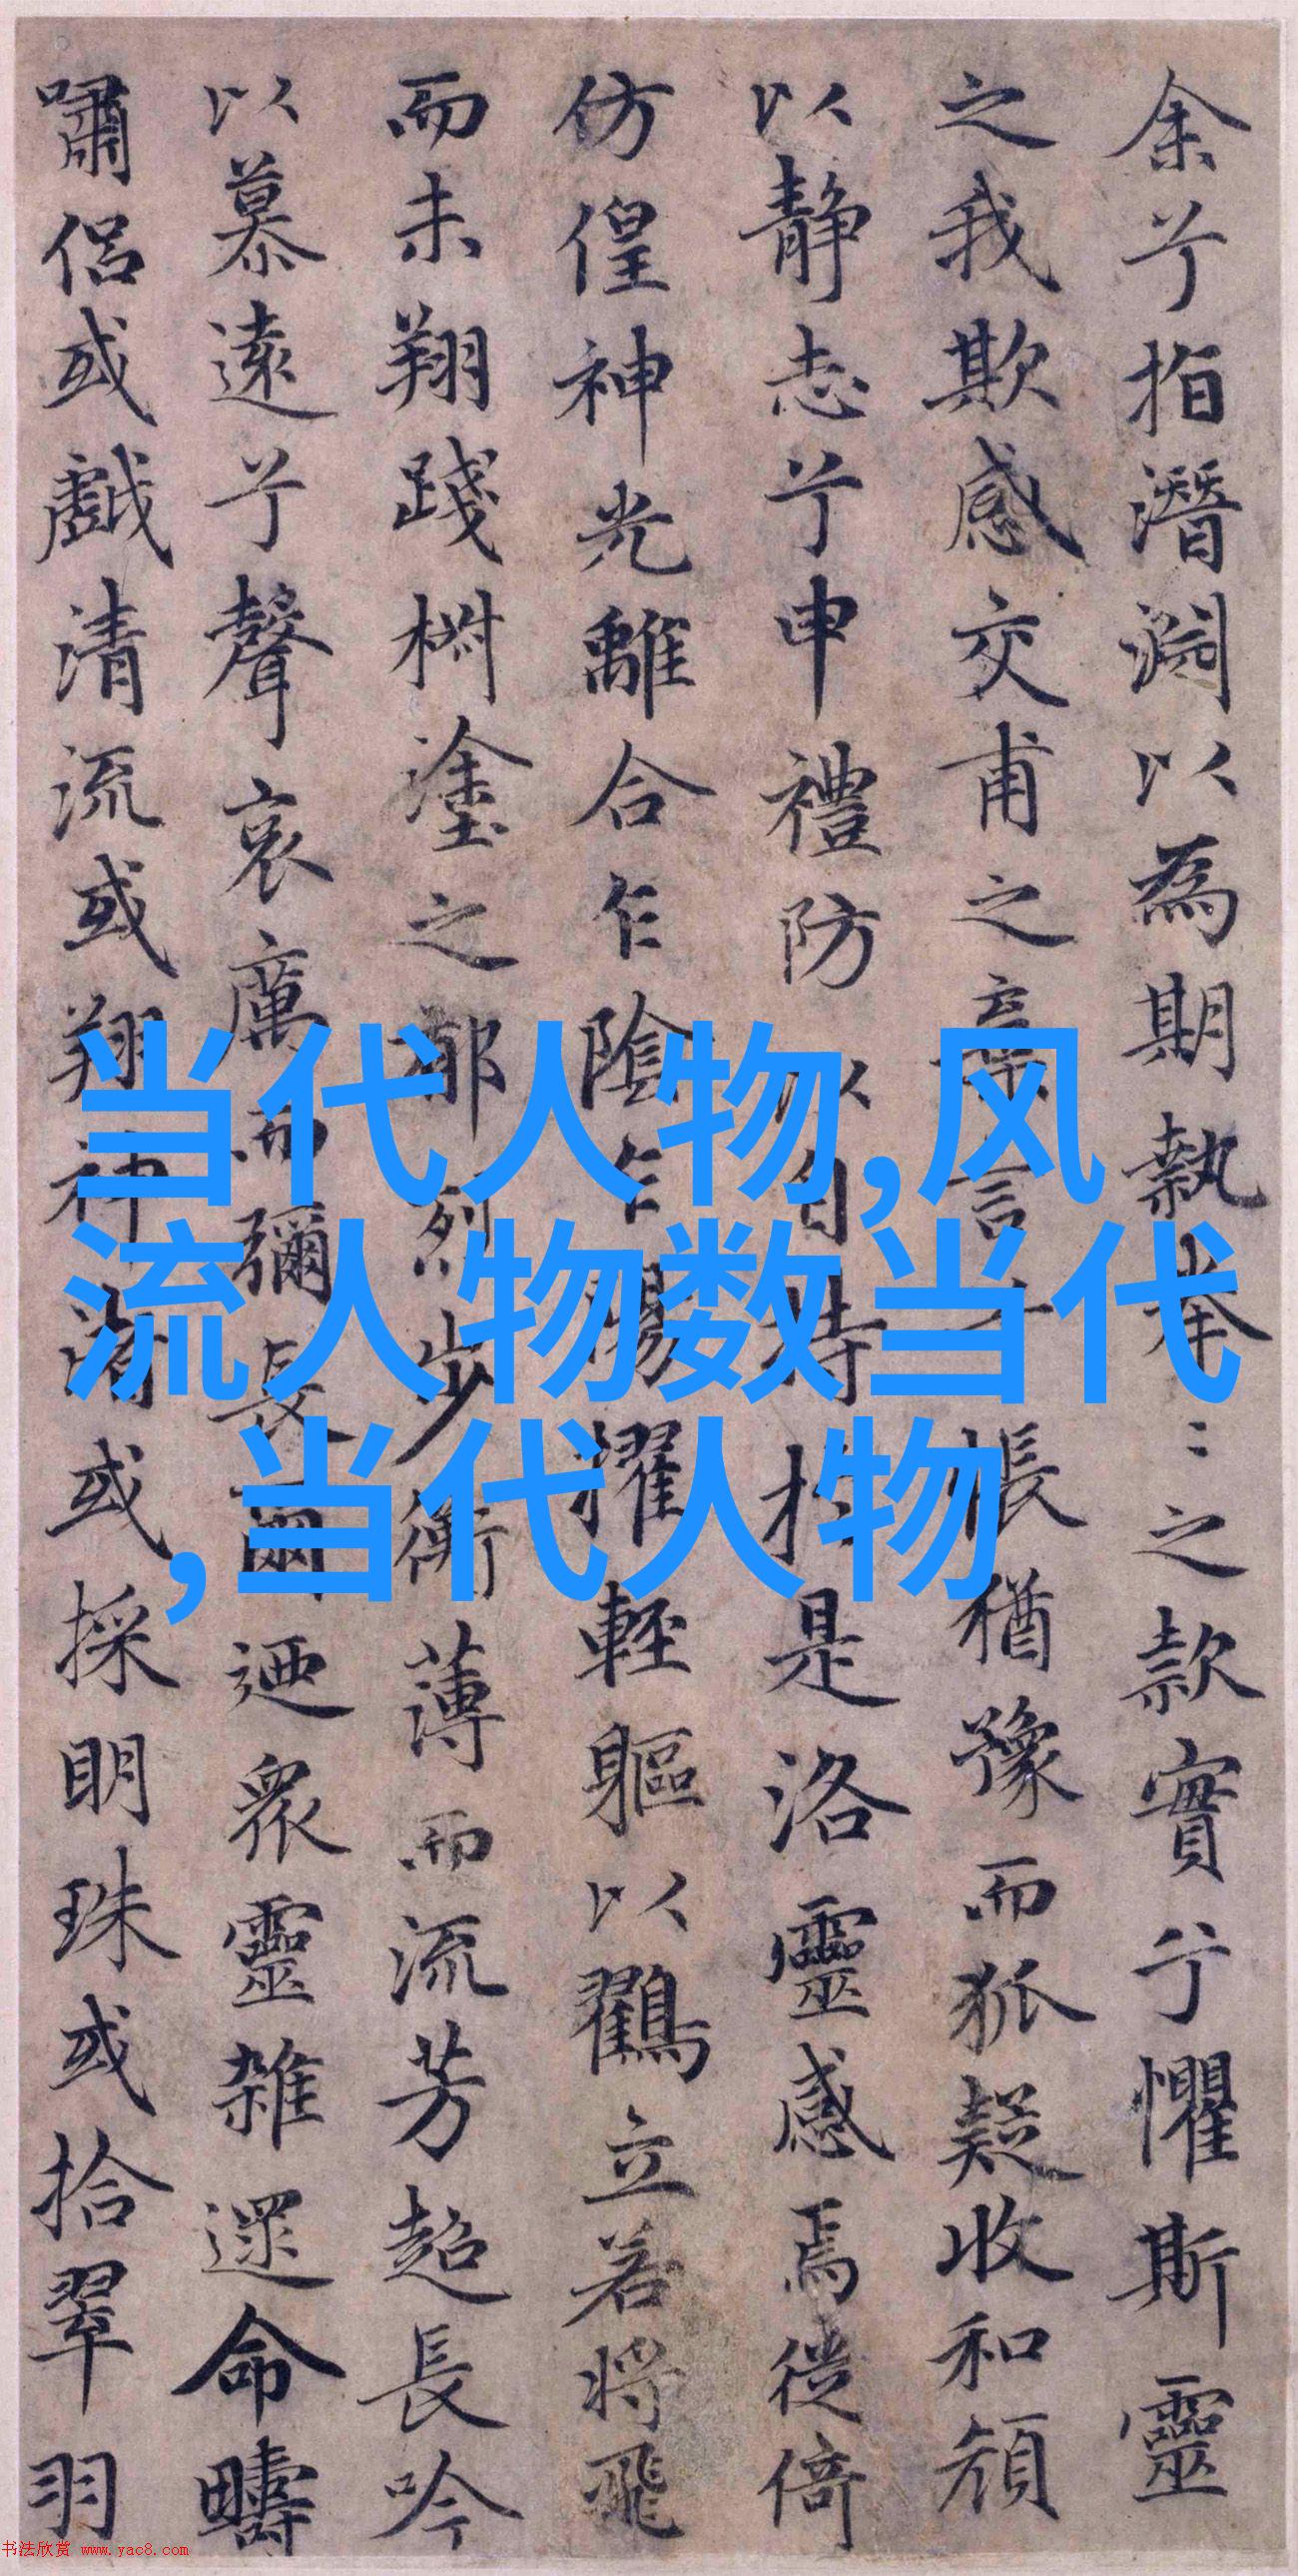 余兮指潛淵以為期執拳〻之款實兮懼斯靈
之我欺感交甫之棄言悵猶豫而狐疑收和顏
以靜志兮申禮防以自持於是洛靈感焉徙倚
仿偟神光離合乍陰乍陽擢輕軀以鸖立若將飛
而未翔踐椒塗之郁烈步衡薄而流芳超長吟
以慕遠兮聲哀厲而彌長爾迺衆靈雜遝命疇
嘯侶或戲清流或翔神渚或採明珠或拾翠羽
当代人物,风
流人物数当代
,当代人物
书法欣赏 www.yac8.com